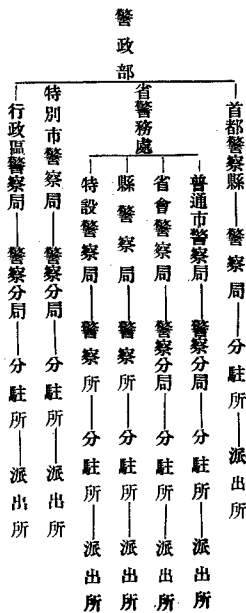 警政部
首都警察縣 警察局 分駐所 派出所
省警務處
普通市警察局 警察分局 分駐所 派出所
省會警察局 警察分局 分駐所 派出所
縣警察局 警察所 分駐所 派出所
特設警察局 警察所 分駐所 派出所
特別市警察局 警察分局 分駐所 派出所
行政區警察局 警察分局 分駐所 派出所